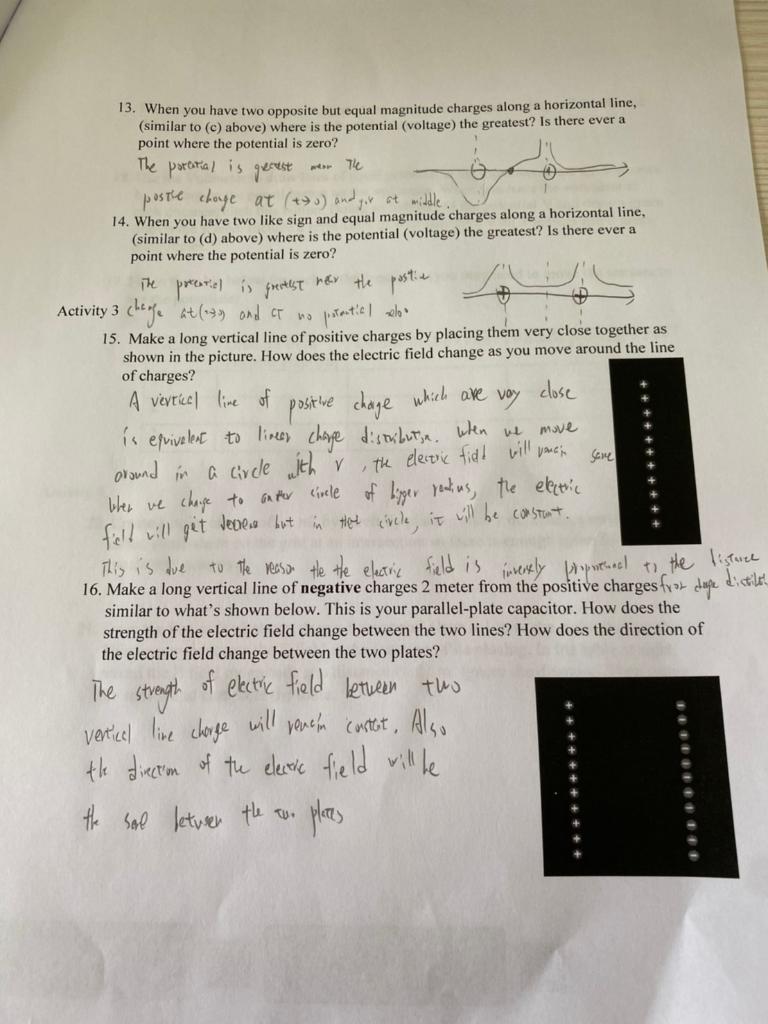 13. When you have two opposite but equal magnitude charges along a horizontal line,
(similar to (c) above) where is the potential (voltage) the greatest? Is there ever a
point where the potential is zero?
The potential is the
charge at and at middle.
14. When you have two like sign and equal magnitude charges along a horizontal line,
(similar to (d) above) where is the potential (voltage) the greatest? Is there ever a
point where the potential is zero?
The potential is greatest near the
Activity 3
and no potential
15. Make a long vertical line of positive charges by placing them very close together as
shown in the picture. How does the electric field change as you move around the line
of charges?
A vertical line of positive charge which are very close
is equivalent to linear charge distribution. When we move
around in a circle with r, the electric field will remain same
When we change to circle of bigger radius, the electric
field will get but in that circle, it will be constant.
This is due to the reason the the electric field is inversely proportional to the distance
16. Make a long vertical line of negative charges 2 meter from the positive charges
from charge
similar to what's shown below. This is your parallel-plate capacitor. How does the
strength of the electric field change between the two lines? How does the direction of
the electric field change between the two plates?
The strength of electric field between two
vertical line charge will remain . Also
the direction of the electric field will be
the between the two plates